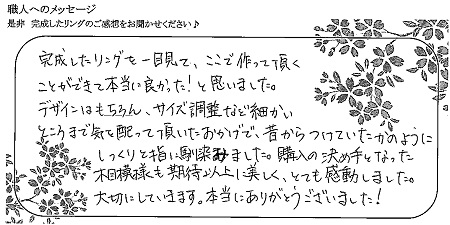 職人へのメッセージ
是非 完成したリングのご感想をお聞かせください♪
完成したリングを一目見て、ここで作って頂く
ことができて本当に良かった！と思いました。
デザインはもちろん、サイズ調整など細かい
ところまで気を配って頂いたおかげで、昔からつけていたかのように
しっくりと指に馴染みました。購入の決め手となった
木目模様も期待以上に美しく、とても感動しました。
大切にしていきます。本当にありがとうございました！